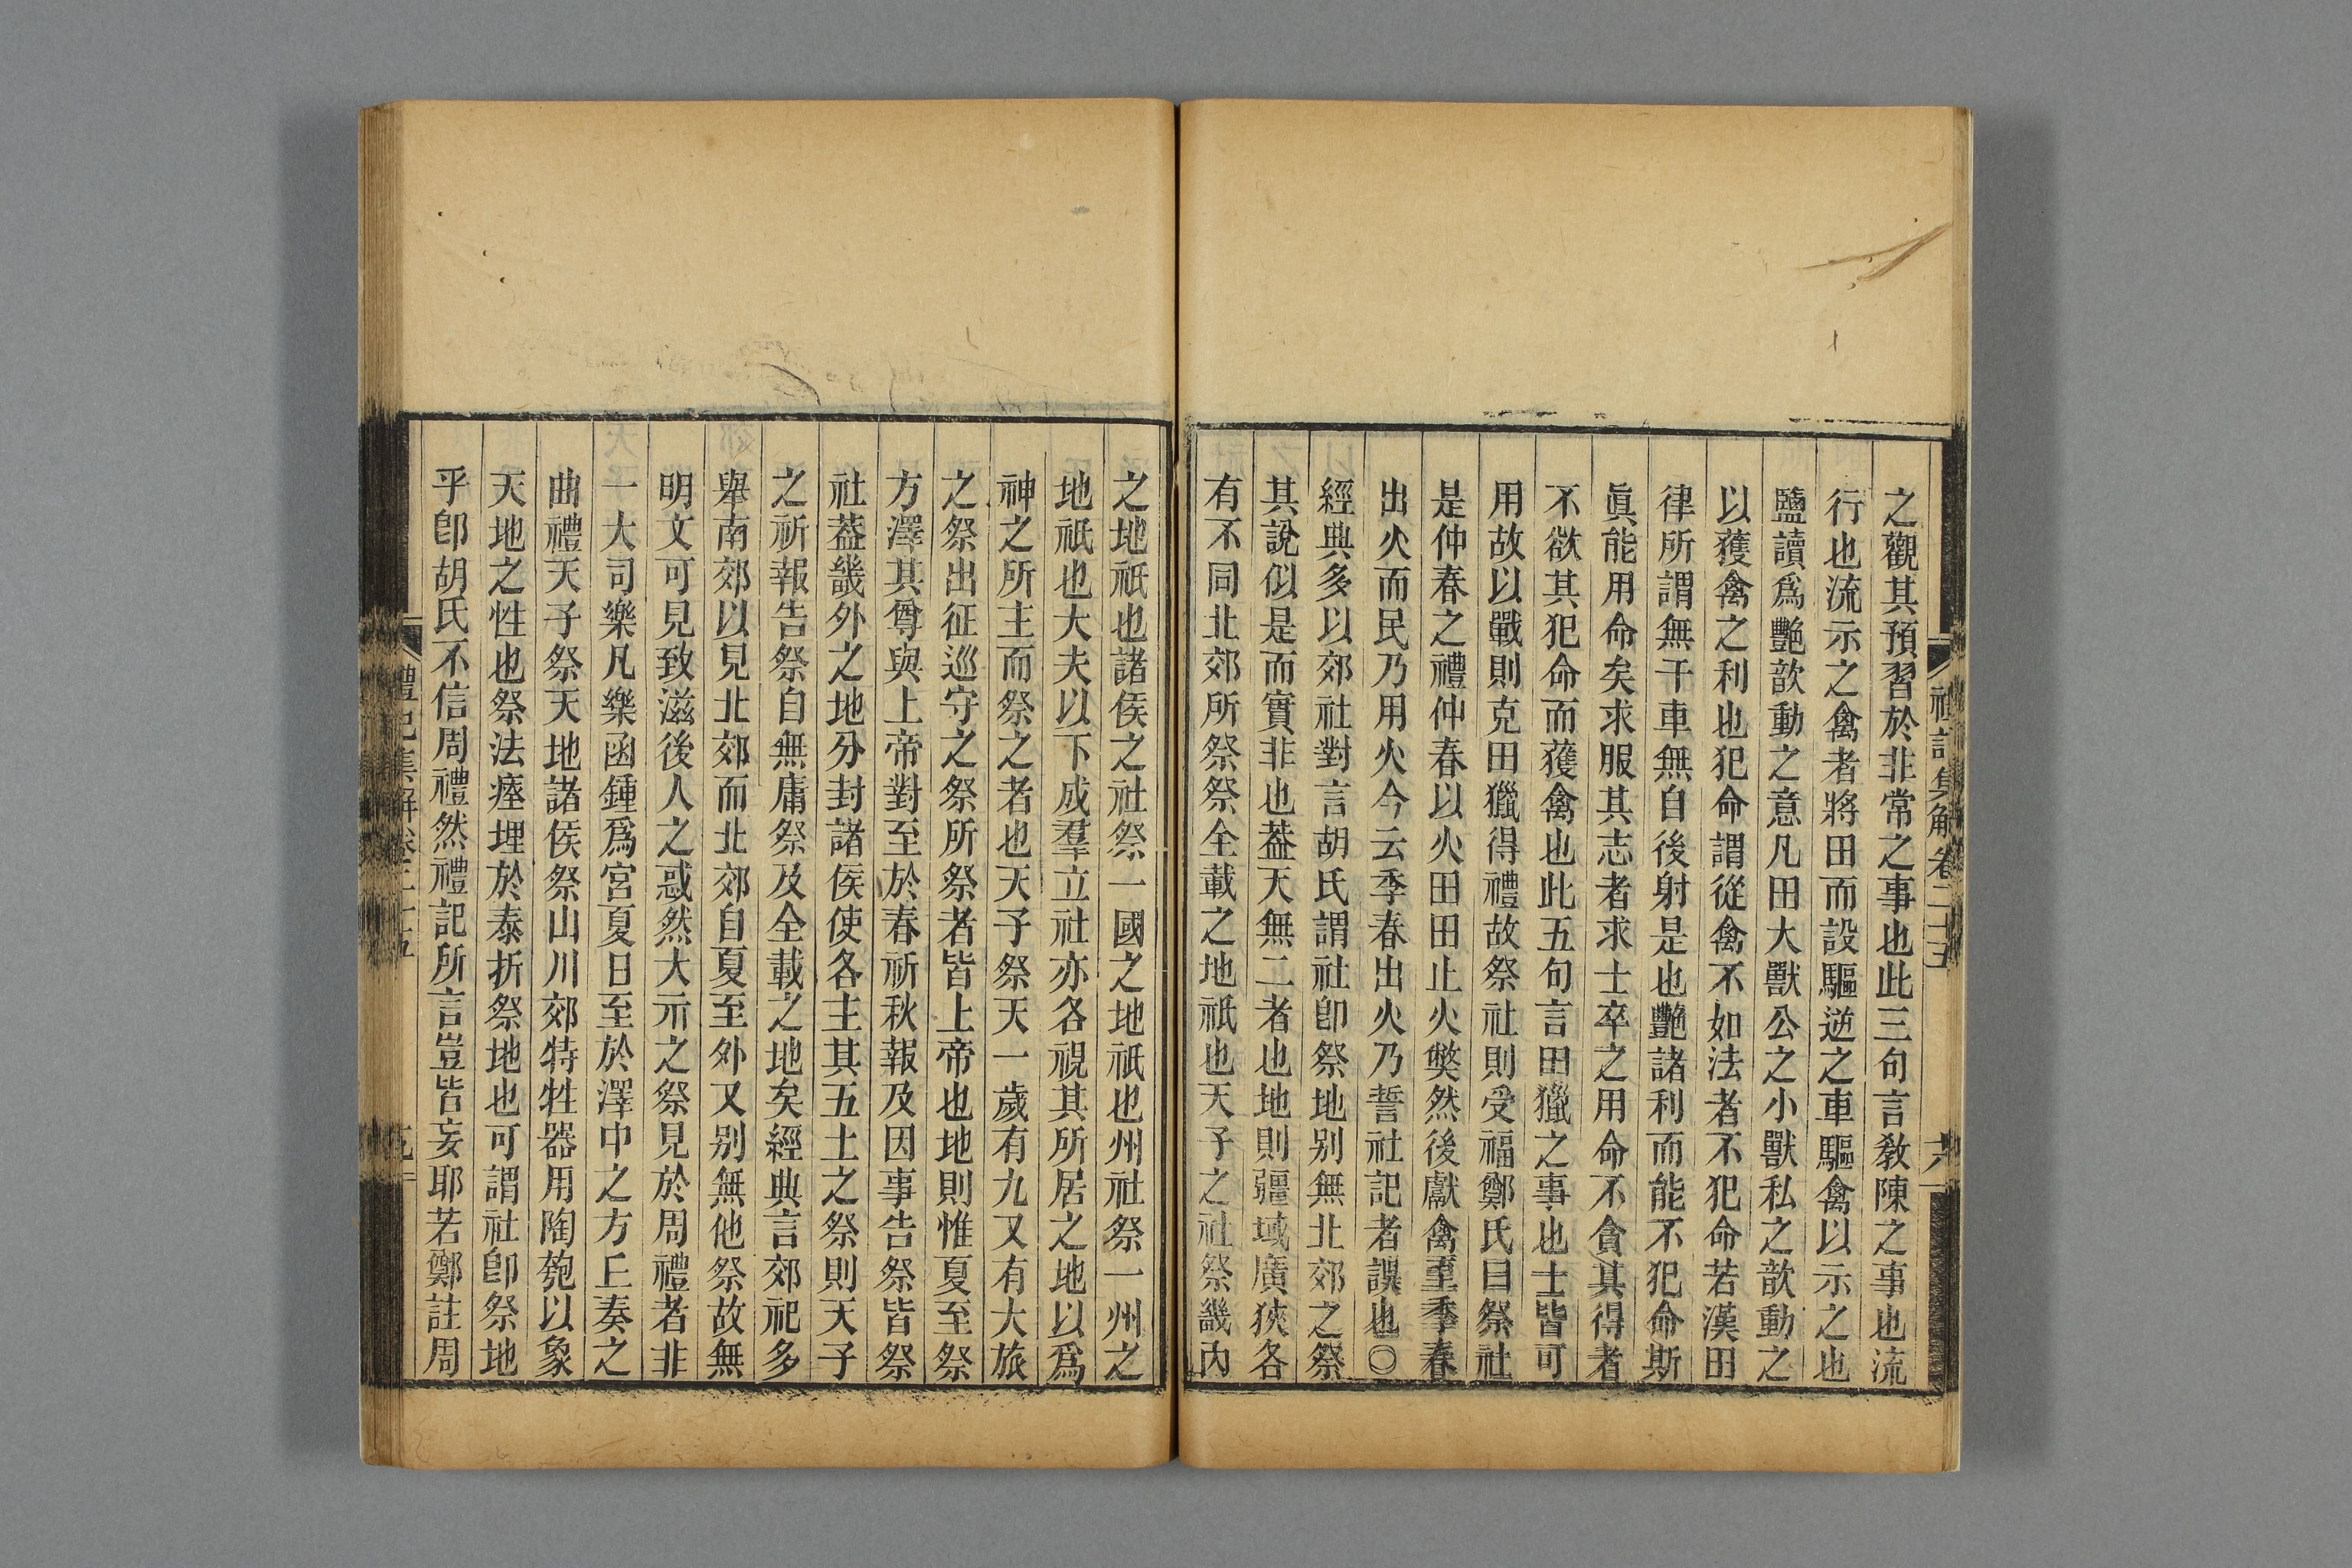 禮記集解卷二十五
六
之觀其預習於非常之事也此三句言敎陳之事也流
行也流示之禽者將田而設驅逆之車驅禽以示之也
鹽讀爲艷歆動之意凡田大獸公之小獸私之歆動之
以獲禽之利也犯命謂從禽不如法者不犯命若漢田
律所謂無干車無自後射是也艷諸利而能不犯命斯
眞能用命矣求服其志者求士卒之用命不貪其得者
不欲其犯命而獲禽也此五句言田獵之事也士皆可
用故以戰則克田獵得禮故祭社則受福鄭氏曰祭社
是仲春之禮仲春以火田田止火獘然後獻禽至季春
出火而民乃用火今云季春出火乃誓社記者誤也○
經典多以郊社對言胡氏謂社卽祭地别無北郊之祭
其說似是而實非也葢天無二者也地則疆域廣狹各
有不同北郊所祭祭全載之地祇也天子之社祭畿內
之地祇也諸侯之社祭一國之地祇也州社祭一州之
地祇也大夫以下成羣立社亦各視其所居之地以爲
神之所主而祭之者也天子祭天一歲有九又有大旅
之祭出征巡守之祭所祭者皆上帝也地則惟夏至祭
方澤其尊與上帝對至於春祈秋報及因事告祭皆祭
社葢畿外之地分封諸侯使各主其五土之祭則天子
之祈報告祭自無庸祭及全載之地矣經典言郊祀多
舉南郊以見北郊而北郊自夏至外又别無他祭故無
明文可見致滋後人之惑然大示之祭見於周禮者非
一大司樂凡樂函鍾爲宮夏日至於澤中之方丘奏之
曲禮天子祭天地諸侯祭山川郊特牲器用陶匏以象
天地之性也祭法瘞埋於泰折祭地也可謂社卽祭地
乎卽胡氏不信周禮然禮記所言豈皆妄耶若鄭註周
禮記集解卷二十五